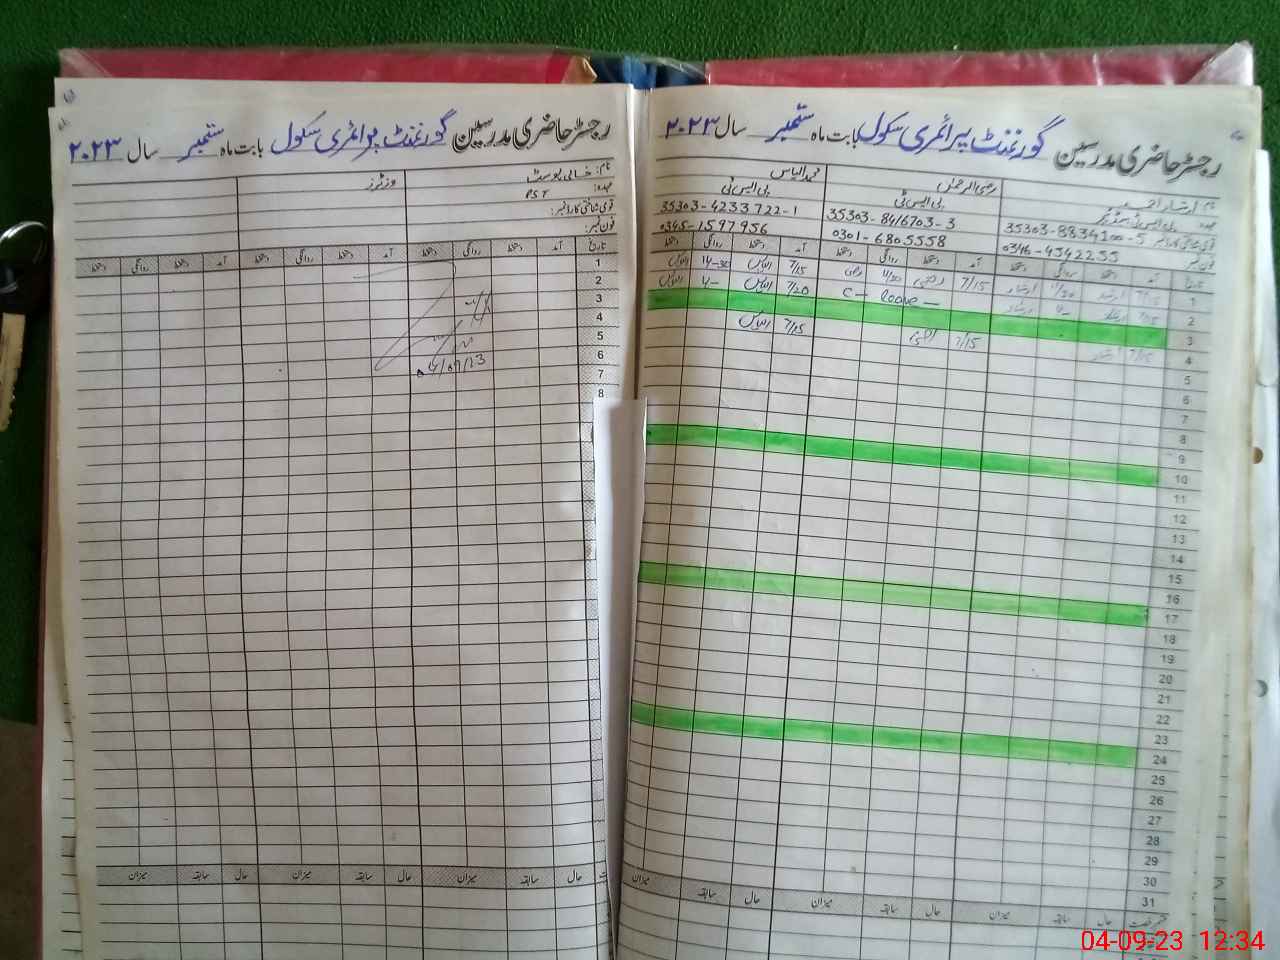 رجسٹر حاضری مدرسین گورنمنٹ پرائمری سکول بابت ماہ ستمبر سال ۲۰۲۳
نام: ارشاد احمد
رضی الرحمٰن
محمد الیاس
پی ایس ٹی
پی ایس ٹی
35303-8834100-5
35303-8416703-3
35303-4233722-1
0346-4542255
0301-6805558
0345-1597956
آمد دستخط روانگی دستخط آمد دستخط روانگی دستخط آمد دستخط روانگی دستخط
1 7/15 ارشاد 11/20 ارشاد 7/15 رضی 11/20 رضی 7/15 الیاس 14-30 الیاس
2 7/15 ارشاد C- Leave - 7/20 الیاس الیاس
3
4 7/15 ارشاد 7/15 7/15 الیاس
5
6
7
8
9
10
11
12
13
14
15
16
17
18
19
20
21
22
23
24
25
26
27
28
29
30
31
حال سابقہ میزان حال سابقہ میزان حال میزان
رجسٹر حاضری مدرسین گورنمنٹ پرائمری سکول بابت ماہ ستمبر سال ۲۰۲۳
نام: خالی پوسٹ
وزٹرز
عہدہ: PST
قومی شناختی کارڈ نمبر:
فون نمبر:
تاریخ آمد دستخط روانگی دستخط آمد دستخط روانگی دستخط آمد دستخط روانگی دستخط
1
2
3
4
5
6
7
8
4/09/23
حال سابقہ میزان حال سابقہ میزان حال سابقہ میزان
04-09-23 12:34